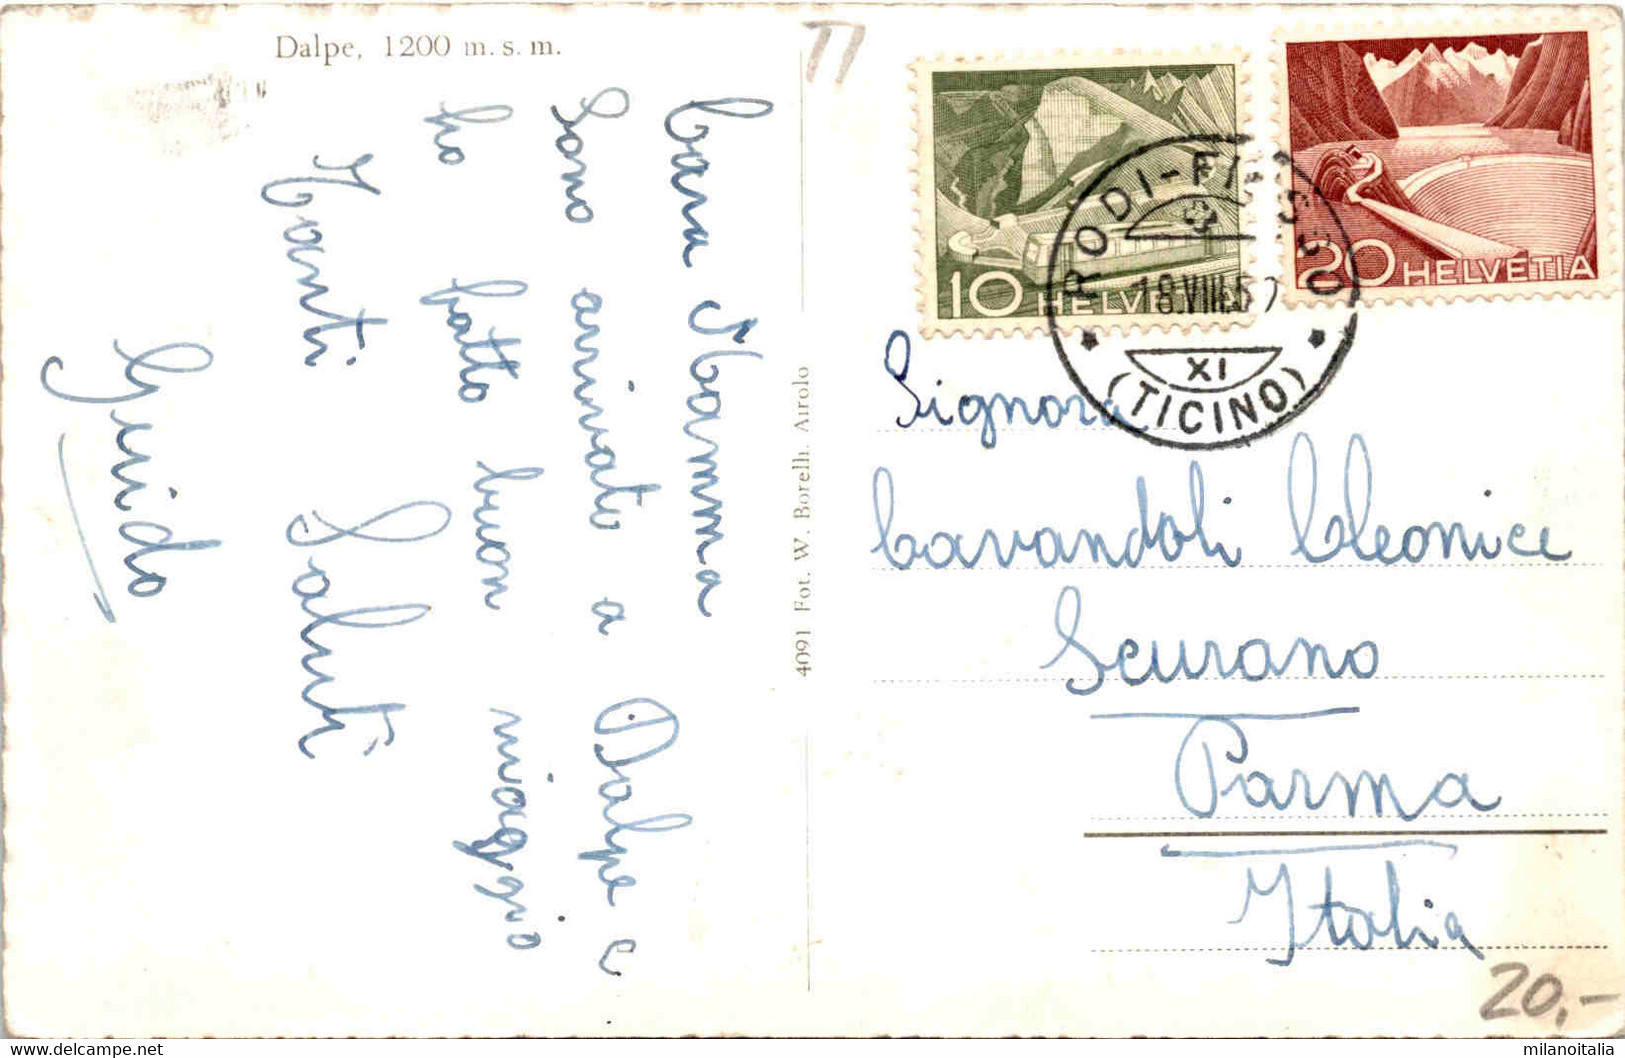 Dalpe, 1200 m. s. m.
Cara Mamma
Sono arrivato a Dalpe e
ho fatto buon viaggio
Tanti Saluti
Guido
4091 Fot. W. Borelli, Airolo
10 HELVETIA
20 HELVETIA
RODI-FIESSO
18.VIII.5
XI
(TICINO)
Signora
Cavandoli Cleonice
Scurano
Parma
Italia
20,-
milanoitalia